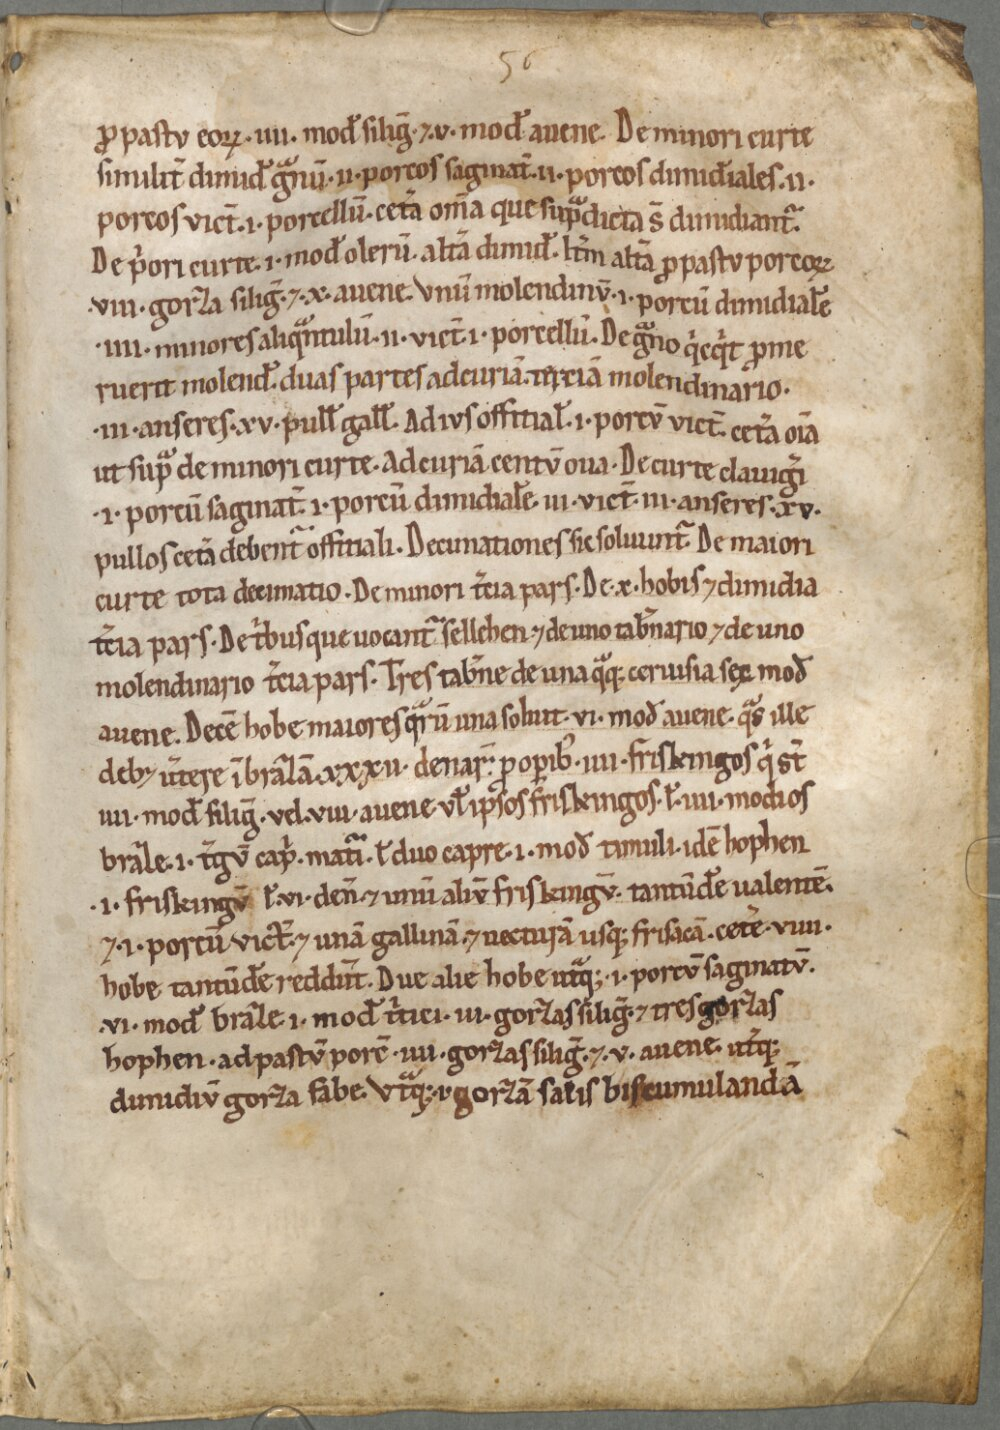 56
ꝓ pastu eoꝝ · iiii · mod̄ siliḡ · ⁊ · v · mod̄ auene · De minori curte
similit̄ dimid̄ gͣnū · ii · porcos saginat̄ · ii · porcos dimid̄iales · ii ·
porcos vict̄ · i · porcellū · cet̄a om̄a que sup̄dicta s̄ dimidiantᷓ ·
De p̄ori curte · i · mod̄ olerū · alt̄a dimid̄ · lt̄m alt̄a ꝓ pastu porcoꝝ
· viii · gorza siliḡ · ⁊ · x · auene · Vnū molendinū · i · porcū dimidiale
· iiii · minores aliqͣntulū · ii · vict̄ · i · porcellū · De gͣno qͥcqͥt ꝓme
ruerit molend̄ · duas partes ad curiā · terciā molendinario ·
· iii · anseres · xv · pull̄ gall̄ · Ad ius offitial̄ · i · porcū vict̄ · cet̄a oīa
ut supͣ de minori curte · Ad curiā centū oua · De curte clauiḡi
· i · porcū saginat̄ · i · porcū dimidiale · iii · vict̄ · iii · anseres · xv ·
pullos cet̄a debentᷓ offitiali · Decimationes sic soluuntᷓ De maiori
curte tota decimatio · De minori t̄cia pars · De · x · hobis ⁊ dimidia
t̄cia pars · De tͥbus que uocantᷓ sellehen ⁊ de uno tab̄nario ⁊ de uno
molendinario t̄cia pars · Tres tab̄ne de una qͣqꝫ ceruisia sex mod̄
auene · Decē hobe maiores qͣrū una soluit · vi · mod̄ auene · qͣs ille
debꝫ ūtere ī brāzā · xxxii · denar̄ · ꝓ opib᷒ · iiii · friskingos qͥ st̄
iiii · mod̄ siliḡ · vel · viii · auene vl̄ ipsos friskingos · l̄ · iiii · modios
brāze · i · t̄gū cap̄ · matͥ · l̄ duo capre · i · mod̄ tumuli · idē hophen
· i · friskingū l̄ · vi · den̄ · ⁊ unū aliū friskingū · tantūde ualentē ·
⁊ · i · porcū vict̄ · ⁊ unā gallinā · ⁊ uecturā usqꝫ frisacā · cet̄e · viiii ·
hobe tantūde reddūt · Due alie hobe utͣqꝫ · i · porcū saginatū ·
· vi · mod̄ brāze · i · mod̄ tͥtici · iii · gorzas siliḡ · ⁊ tres gorzas
hophen · ad pastū porc̄ · iiii · gorzas siliḡ · ⁊ · v · auene · ut̄qꝫ
dimidiū gorza fabe · Vtͣqꝫ · v gorzā salis biscumulandā